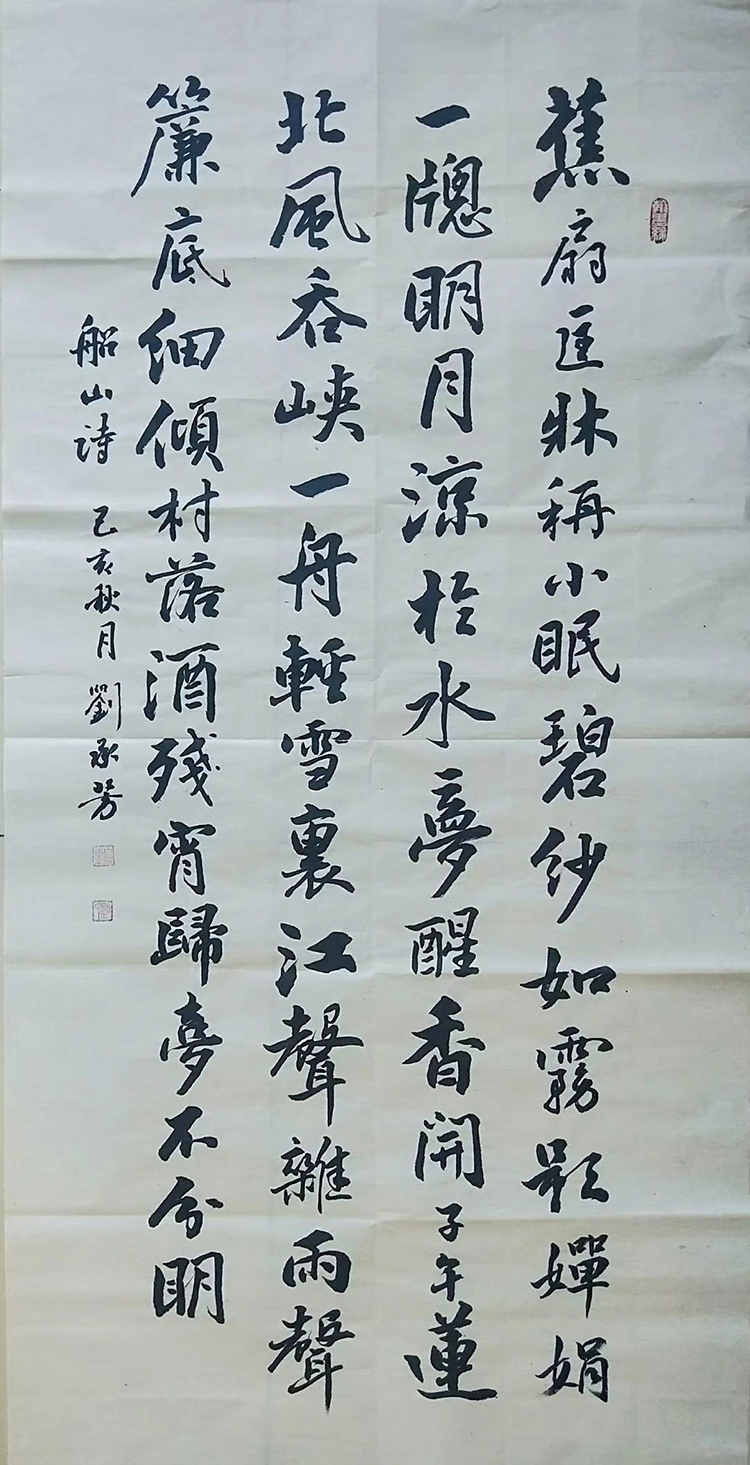 蕉扇匡牀稱小眠碧紗如霧影嬋娟
一牕明月涼於水夢醒香開子午蓮
北風吞峽一舟輕雪裏江聲雜雨聲
簾底細傾村落酒殘宵歸夢不分明
船山詩 己亥秋月 劉承芳